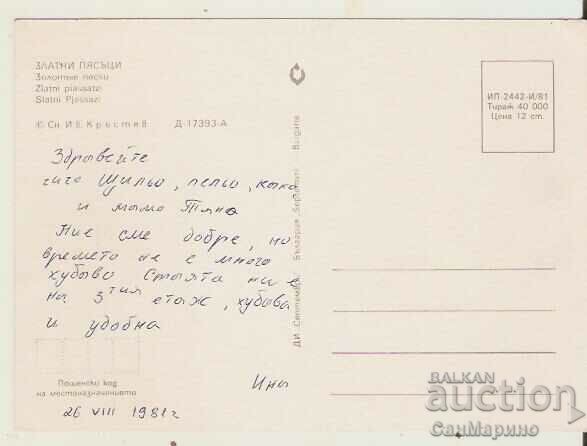 ЗЛАТНИ ПЯСЪЦИ
Золотые пески
Zlatni piavsatzi
Slatni Pjassazi
© Сн. Ив. Кръстев Д-17393-А
Здравейте
чичо Щильо, лельо, кака
и мамо Тяна
Ние сме добре, но
времето не е много
хубаво Стаята ни е
на 3тия етаж, хубава
и удобна
Пощенски код
на местоназначението
Ина
26 VIII 1981 г
ДИ „Септември" България „Septemvri" Bulgaria
ИП-2442-И/81
Тираж 40 000
Цена 12 ст.
BALKAN
auction
СанМарино